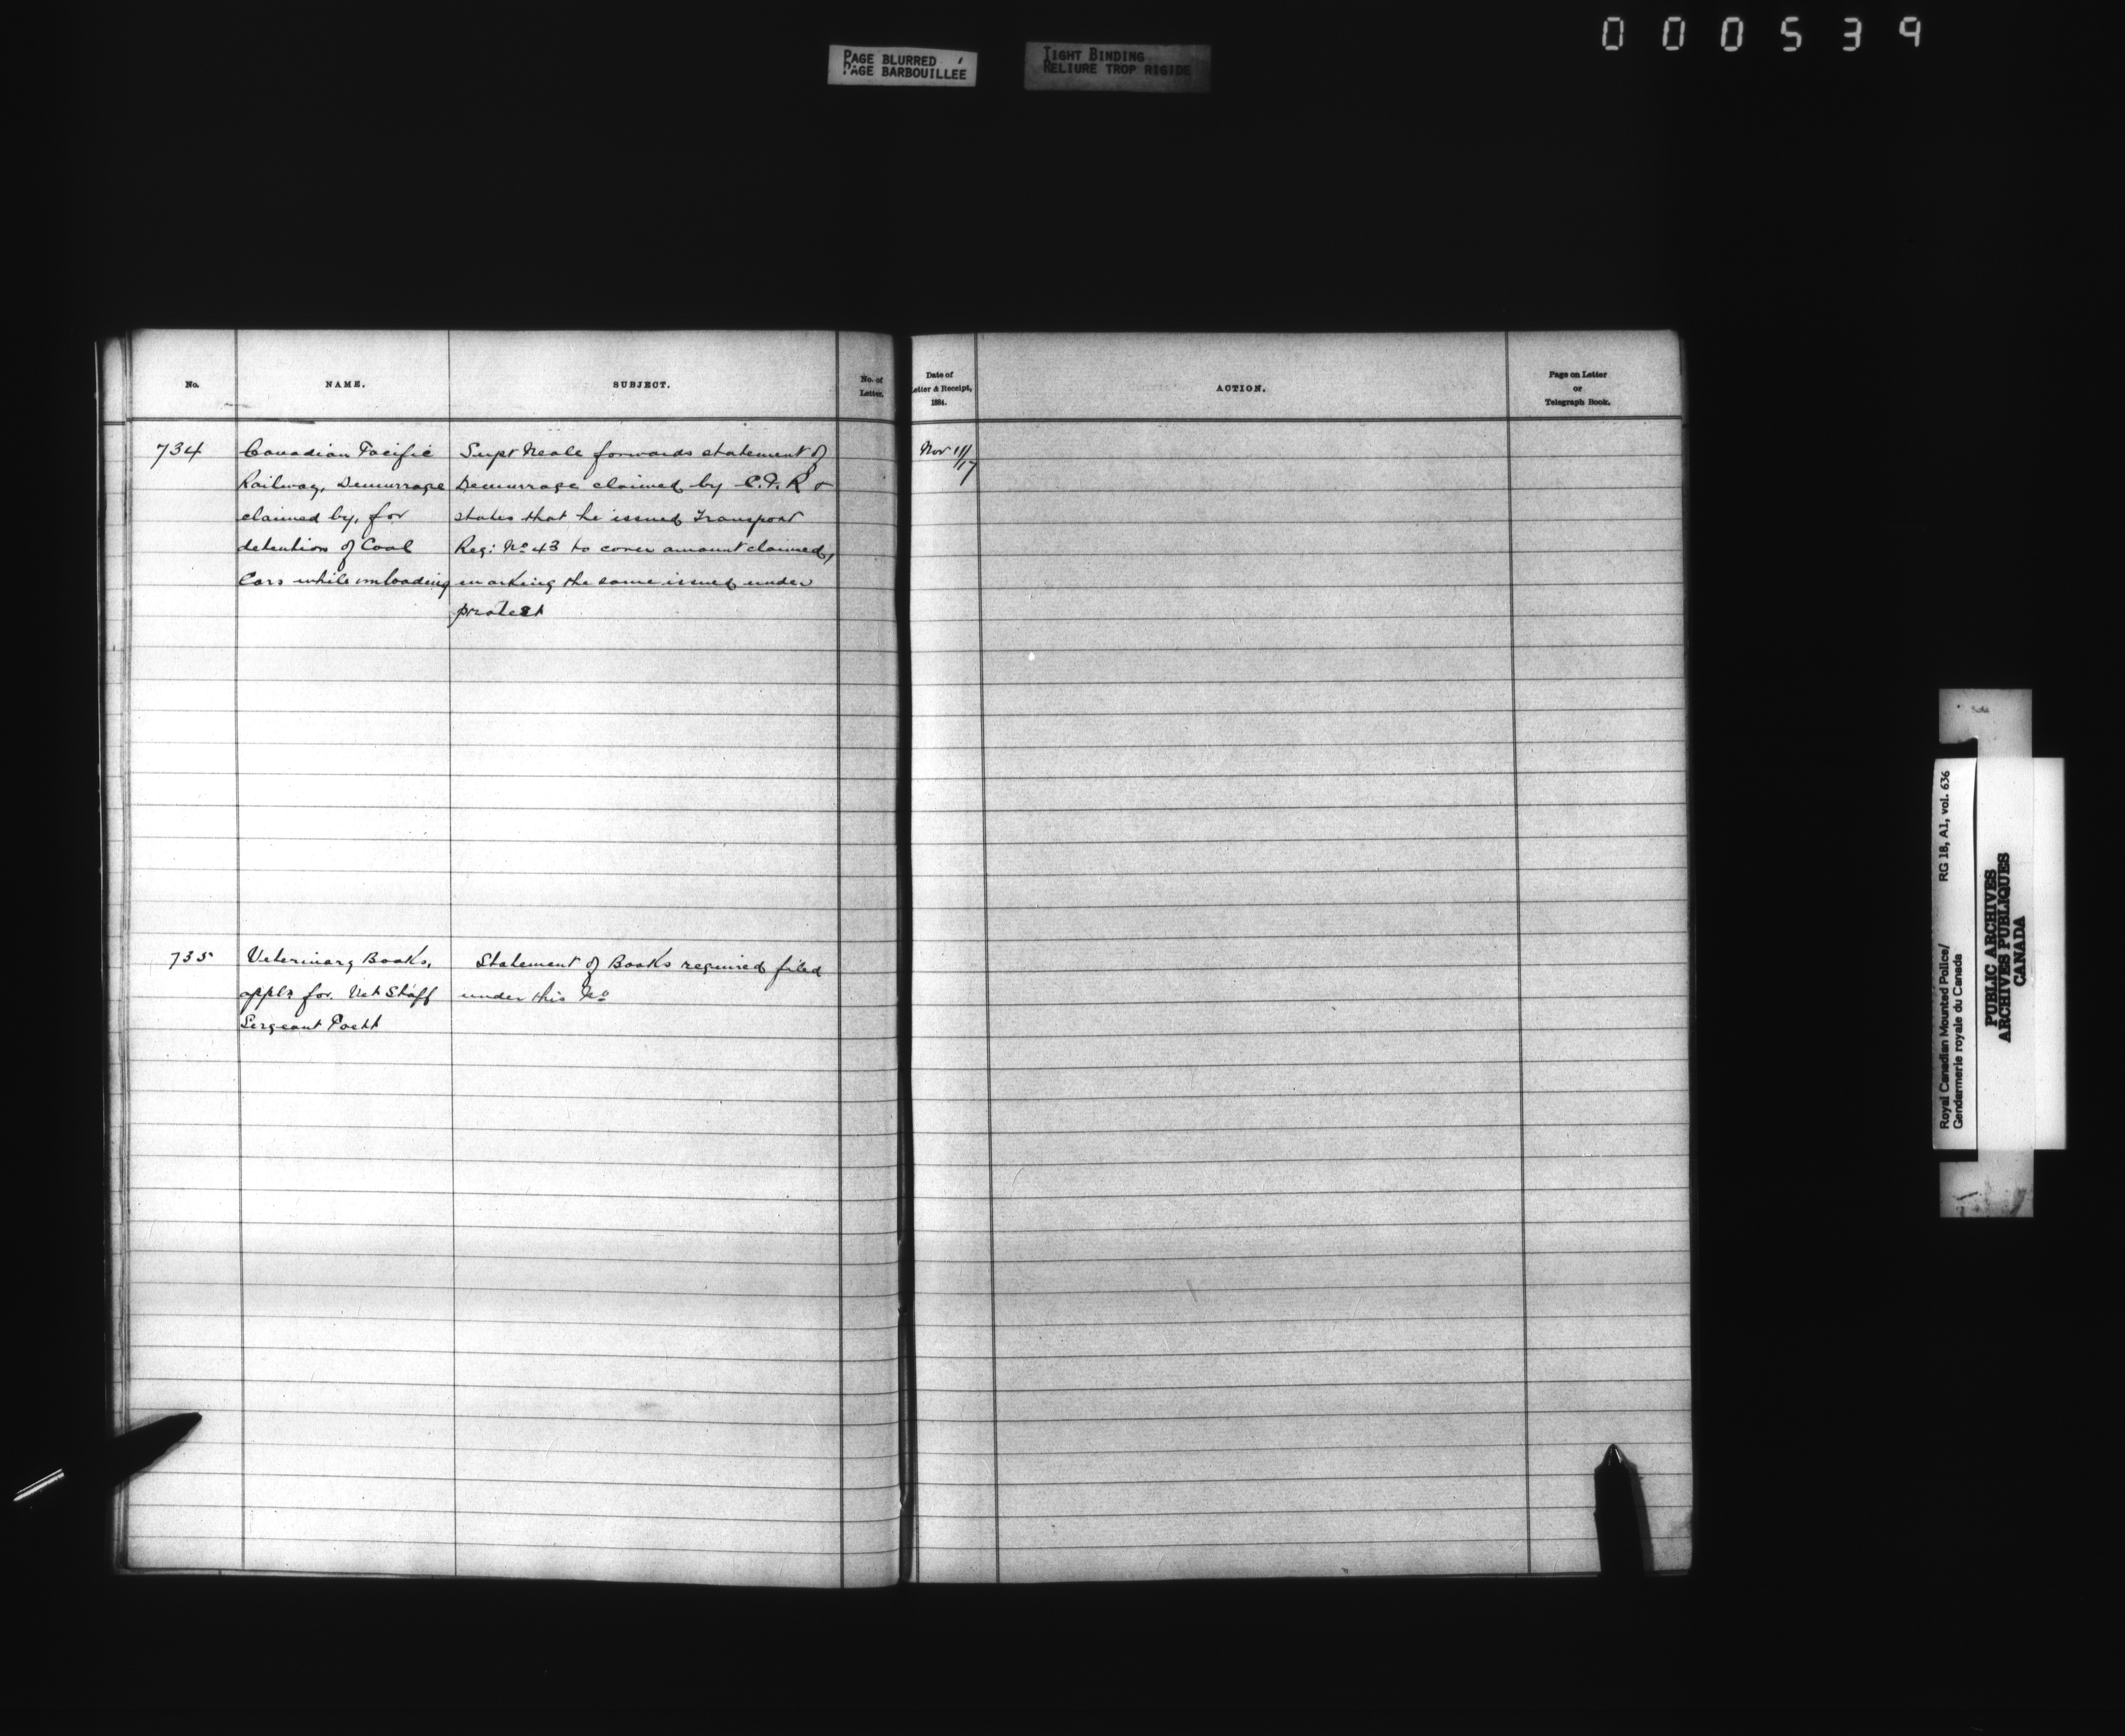 000539
PAGE BLURRED
PAGE BARBOUILLEE
TIGHT BINDING
RELIURE TROP RIGIDE
No.
NAME.
SUBJECT.
No. of
Letter.
Date of
Letter & Receipt,
1884.
ACTION.
Page on Letter
or
Telegraph Book.
734
Canadian Pacific
Railway, Demurrage
claimed by, for
detention of Coal
Cars while unloading
Supt Neale forwards statement of
Demurrage claimed by C.P.R &
states that he issued Transport
Req: No 43 to cover amount claimed,
marking the same issued under
protest
Nov 11/17
735
Veterinary Books,
appln for. Vet Staff
Sergeant Poett
Statement of Books required filed
under this No
Royal Canadian Mounted Police/
Gendarmerie royale du Canada
RG 18, A1, vol. 636
PUBLIC ARCHIVES
ARCHIVES PUBLIQUES
CANADA